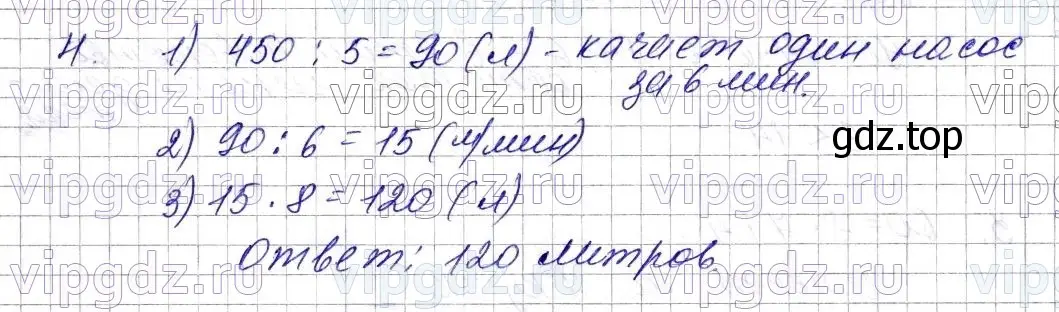 4. 1) 450 : 5 = 90 (л) - качает один насос
за 6 мин.
2) 90 : 6 = 15 (л/мин)
gdz.top
3) 15 · 8 = 120 (л)
Ответ: 120 литров.
vipgdz.ru